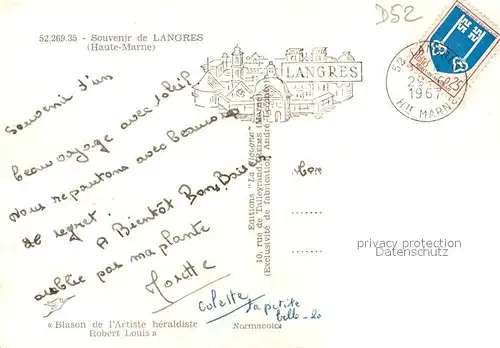 52.269.35 - Souvenir de LANGRES
(Haute-Marne)
D52
LANGRES
52
1967
Hte MARNE
Souvenir d'un
beau voyage avec soleil
Nous repartons avec beaucoup
de regret. A Bientôt Bons Baisers
oublie pas ma plante
Colette
la petite
Editions "La Cigogne"
10, rue de Talleyrand, REIMS (Marne)
(Exclusivité de fabrication André Leconte)
privacy protection
Datenschutz
« Blason de l'Artiste héraldiste
Robert Louis »
Normacolor